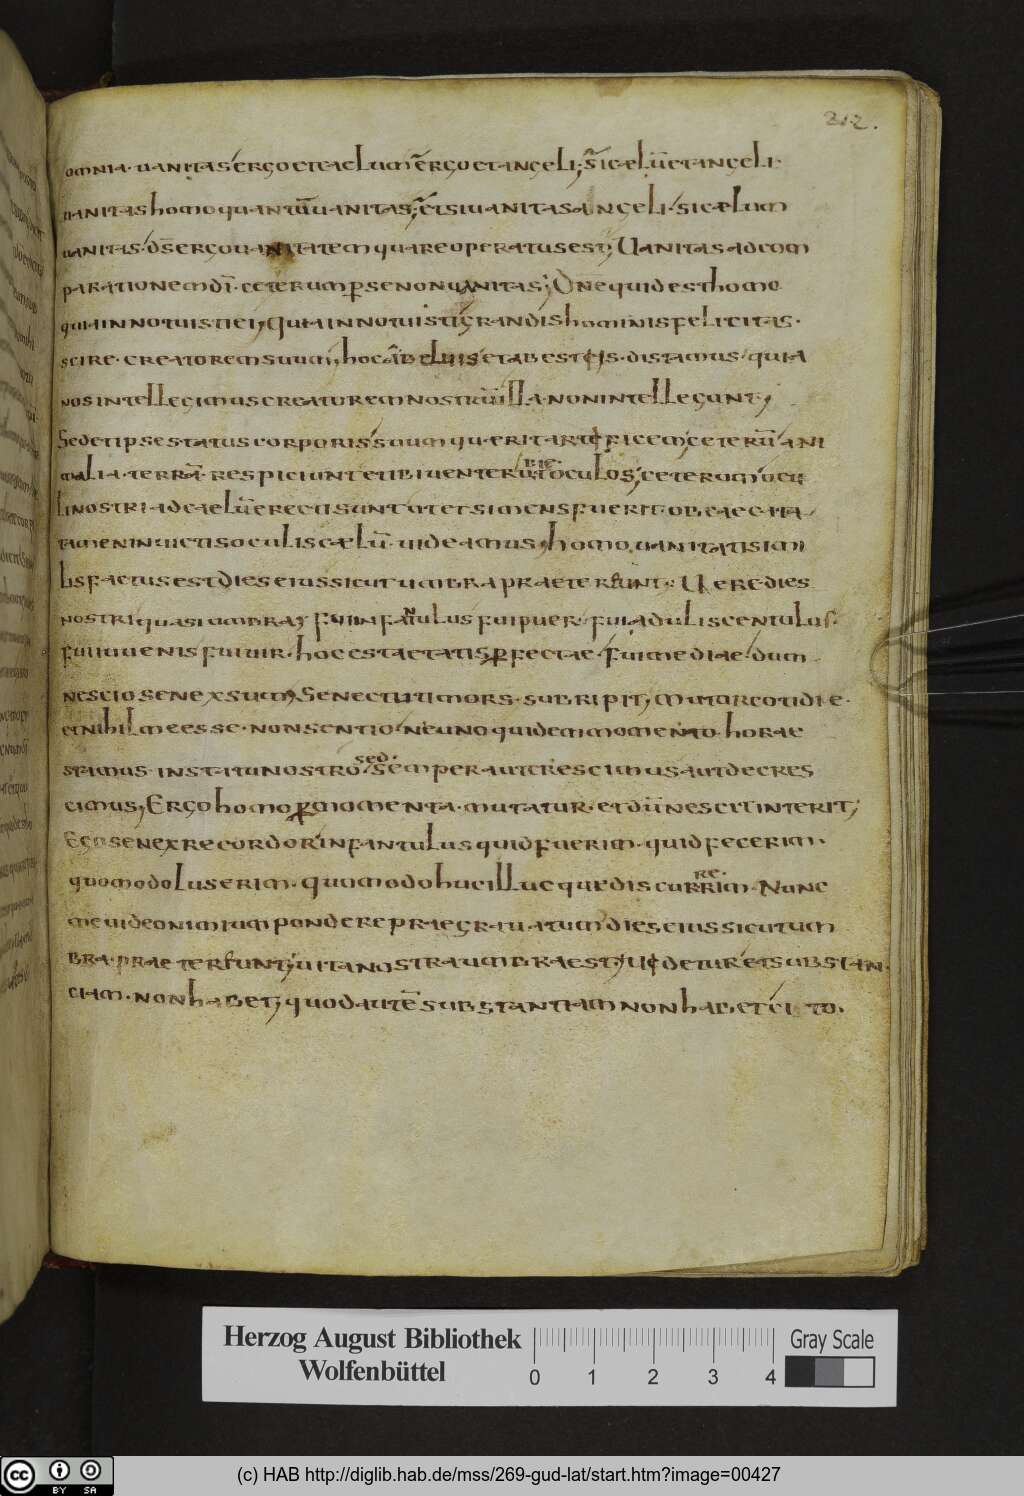 212.
omnia· uanitas ergo et caelum ergo et angeli; Si cælū et angeli·
uanitas homo quantū uanitas; et si uanitas angeli· si cælum
uanitas· d̄s ergo uanitatem quare operatus est; Uanitas ad com
parationem dī· ceterum per se non uanitas; Dn̄e quid est homo
quia innotuisti ei; Quia innotuisti grandis hominis felicitas·
scire· creatorem suum; hoc a beluis et a bestiis· distamus· quia
nos intellegimus creatorem nostrū illa· non intellegunt;
Sed et ipse status corporis suum quaerit artificem; ceterū ani
malia· terrā· respiciunt et ibi uenter ubi et oculos; ceterum ocu
li nostri ad caelū erecti sunt ut etsi mens fuerit obcaecata
tamen inuictis oculis cælū· uideamus; homo uanitati simi
lis factus est Dies eius sicut umbra praetereunt· Uere dies
nostri quasi umbra; fui infantulus fui puer· fui adulescentulus·
fui iuuenis fui uir· hoc est aetatis perfectae· fui mediae· dum
nescio senex sum; Senectuti mors· subripit; Mutor cotidie·
et nihil me esse· non sentio· ne uno quidem momento· horae
stamus· in statu nostro· sed· semper aut crescimus aut decres
cimus; Ergo homo per momenta· mutatur· et dū nescit interit;
Ego senex recordor infantulus quid fuerim· quid fecerim·
quomodo luserim· quomodo huc illuc que discurrerim· Nunc
me uideo nimium pondere praegrauatum dies eius sicut um
bra· praetereunt; uita nostra umbra est; Uidetur et substan·
ciam· non habet; quod autē substantiam non habet cito·
Herzog August Bibliothek
Wolfenbüttel
0 1 2 3 4
Gray Scale
cc BY SA
(c) HAB http://diglib.hab.de/mss/269-gud-lat/start.htm?image=00427